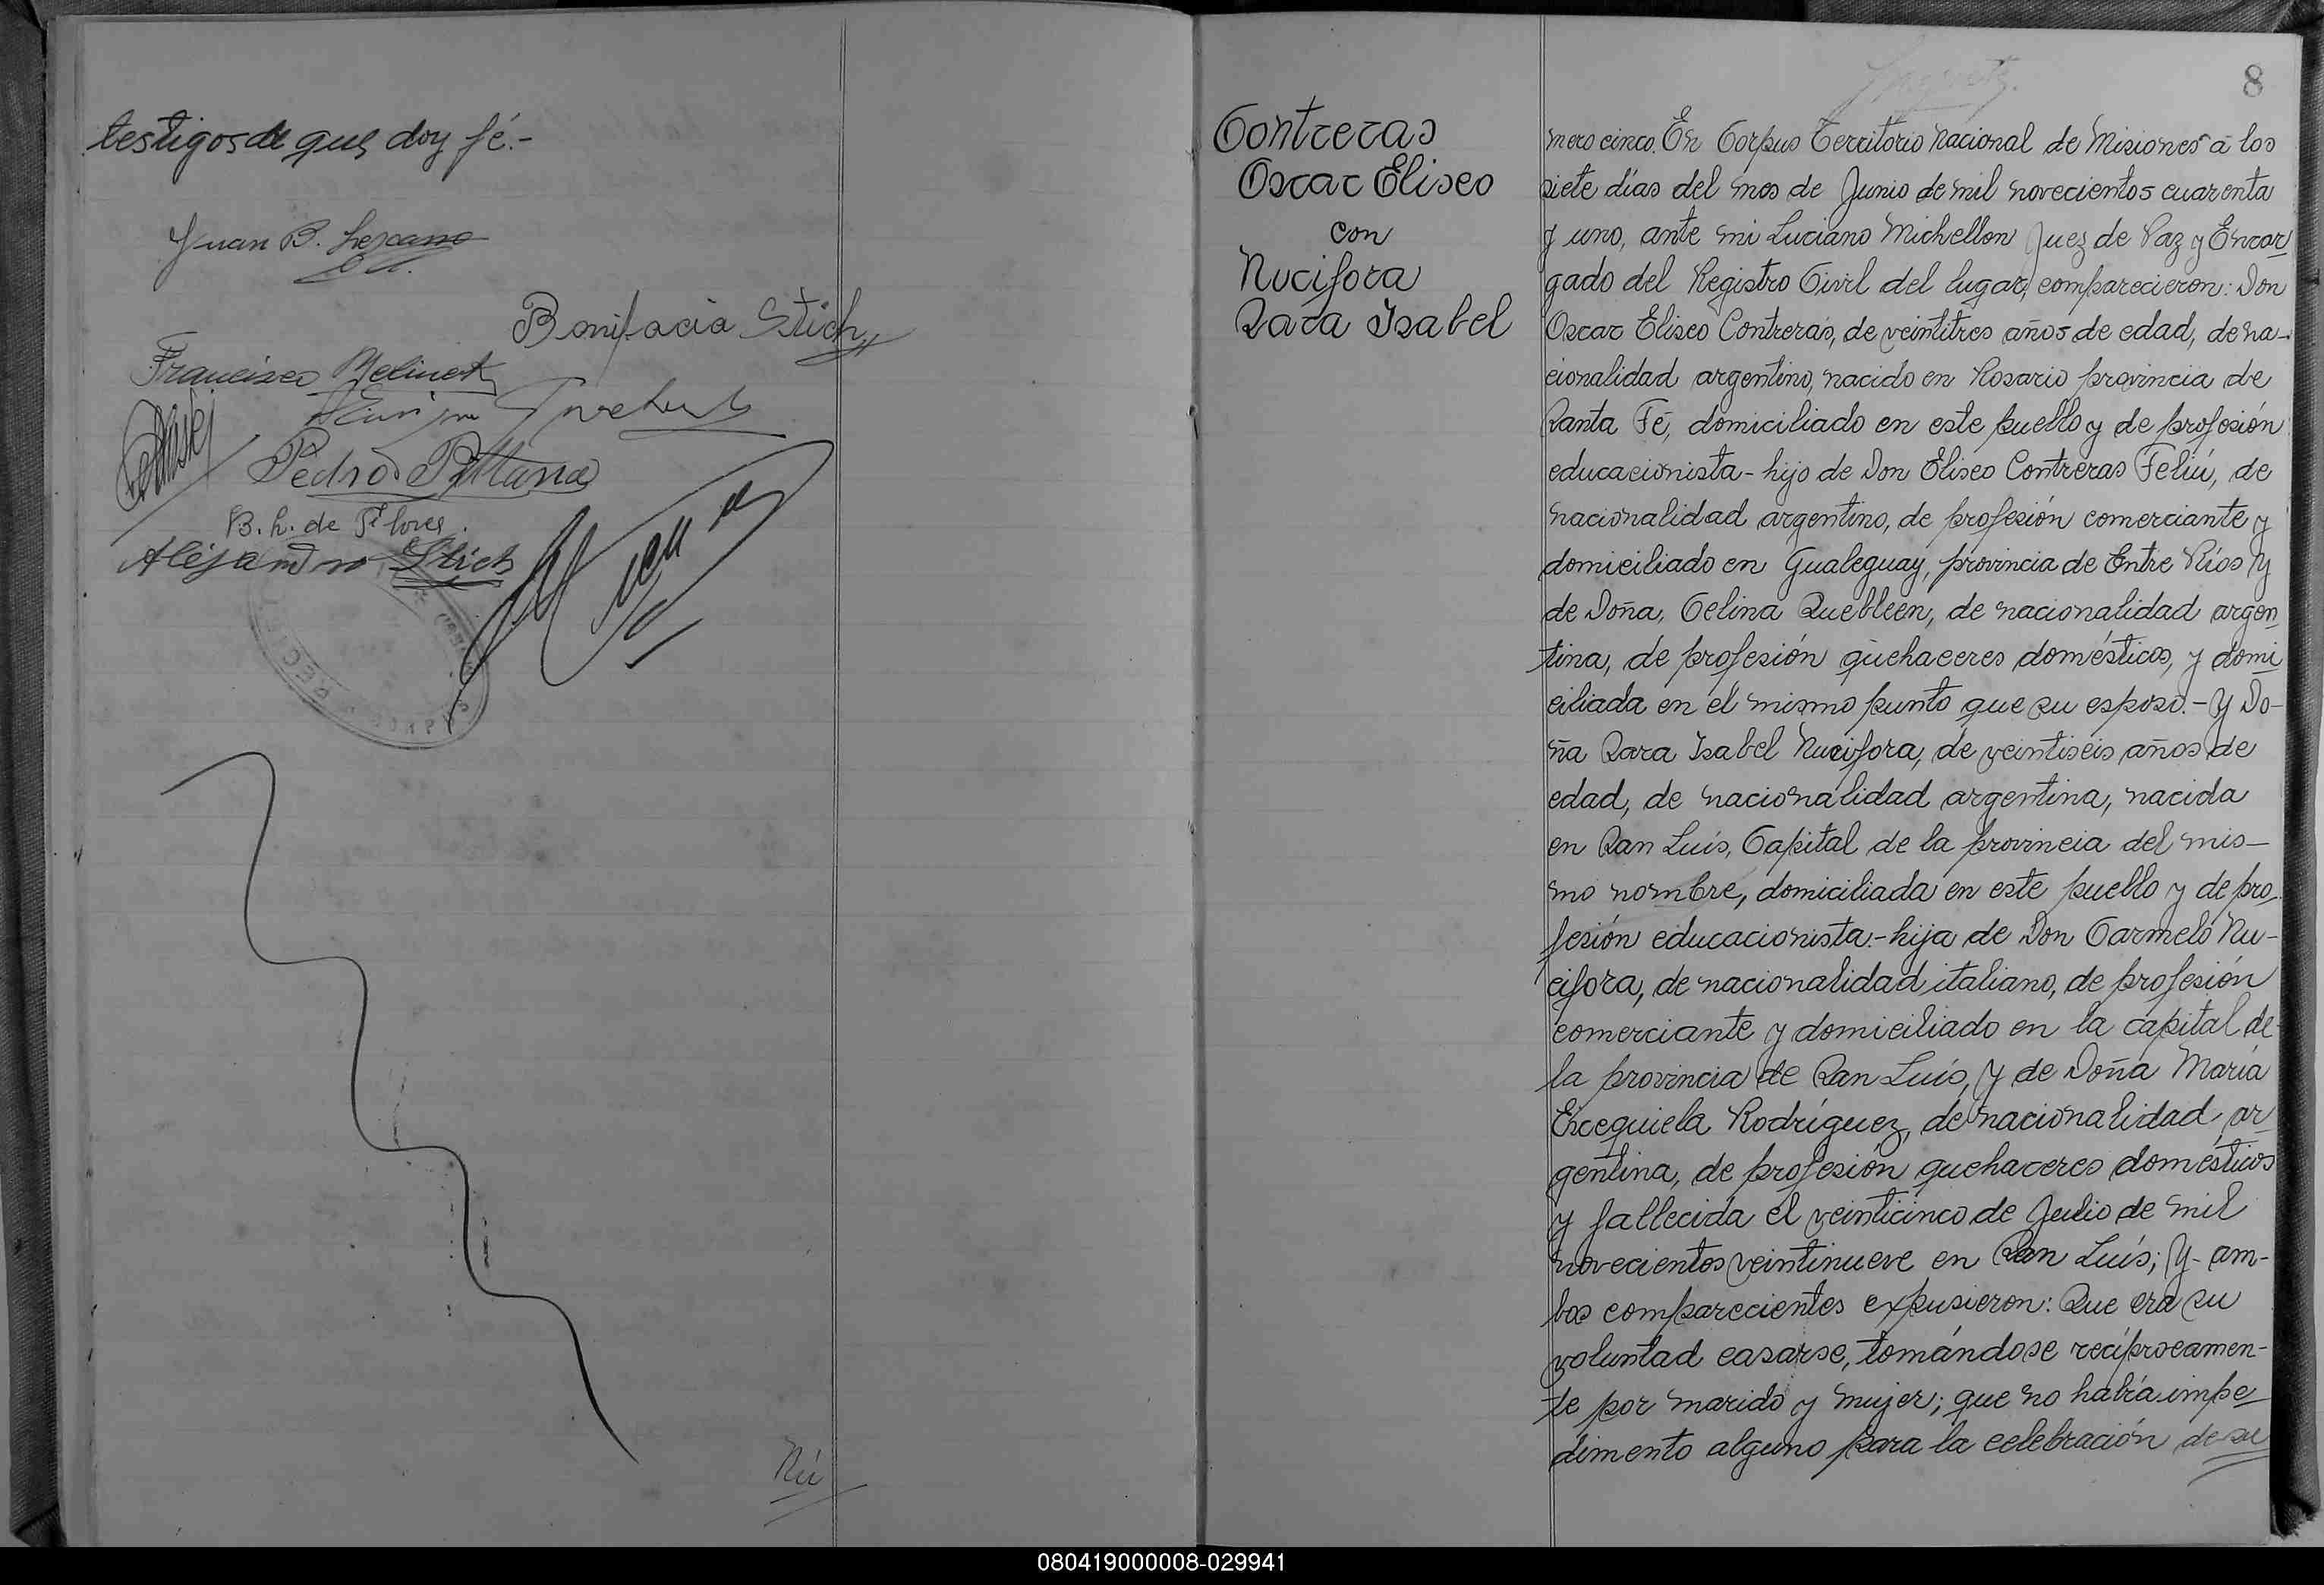 testigos de que doy fé.-
Juan B. Lezcano
Bonifacia Stich
Francisco
Pedro Pittana
B. L. de Flores.
Alejandro Stich
Nú
8
Contreras
Oscar Eliseo
con
Nucifora
Sara Isabel
mero cinco. En Corpus Territorio Nacional de Misiones á los
siete días del mes de Junio de mil novecientos cuarenta
y uno, ante mi Luciano Michellon Juez de Paz y Encar
gado del Registro Civil del lugar, comparecieron: Don
Oscar Eliseo Contreras, de veintitres años de edad, de na-
cionalidad argentino, nacido en Rosario provincia de
Santa Fé, domiciliado en este pueblo y de profesión
educacionista - hijo de Don Eliseo Contreras Feliú, de
nacionalidad argentino, de profesión comerciante y
domiciliado en Gualeguay, provincia de Entre Ríos y
de Doña, Celina Quebleen, de nacionalidad argen
tina, de profesión quehaceres domésticos, y domi
ciliada en el mismo punto que su esposo.- Y Do-
ña Sara Isabel Nucifora, de veintiseis años de
edad, de nacionalidad argentina, nacida
en San Luís, Capital de la provincia del mis-
mo nombre, domiciliada en este pueblo y de pro
fesión educacionista.- hija de Don Carmelo Nu-
cifora, de nacionalidad italiano, de profesión
comerciante y domiciliado en la capital de
la provincia de San Luís, Y de Doña María
Exequiela Rodríguez, de nacionalidad ar
gentina, de profesión quehaceres domésticos
y fallecida el veinticinco de Julio de mil
novecientos veintinueve en San Luís; Y- am-
bos comparecientes expusieron: Que era su
voluntad casarse, tomándose recíprocamen-
te por marido y mujer; que no había impe
dimento alguno para la celebración de su
080419000008-029941